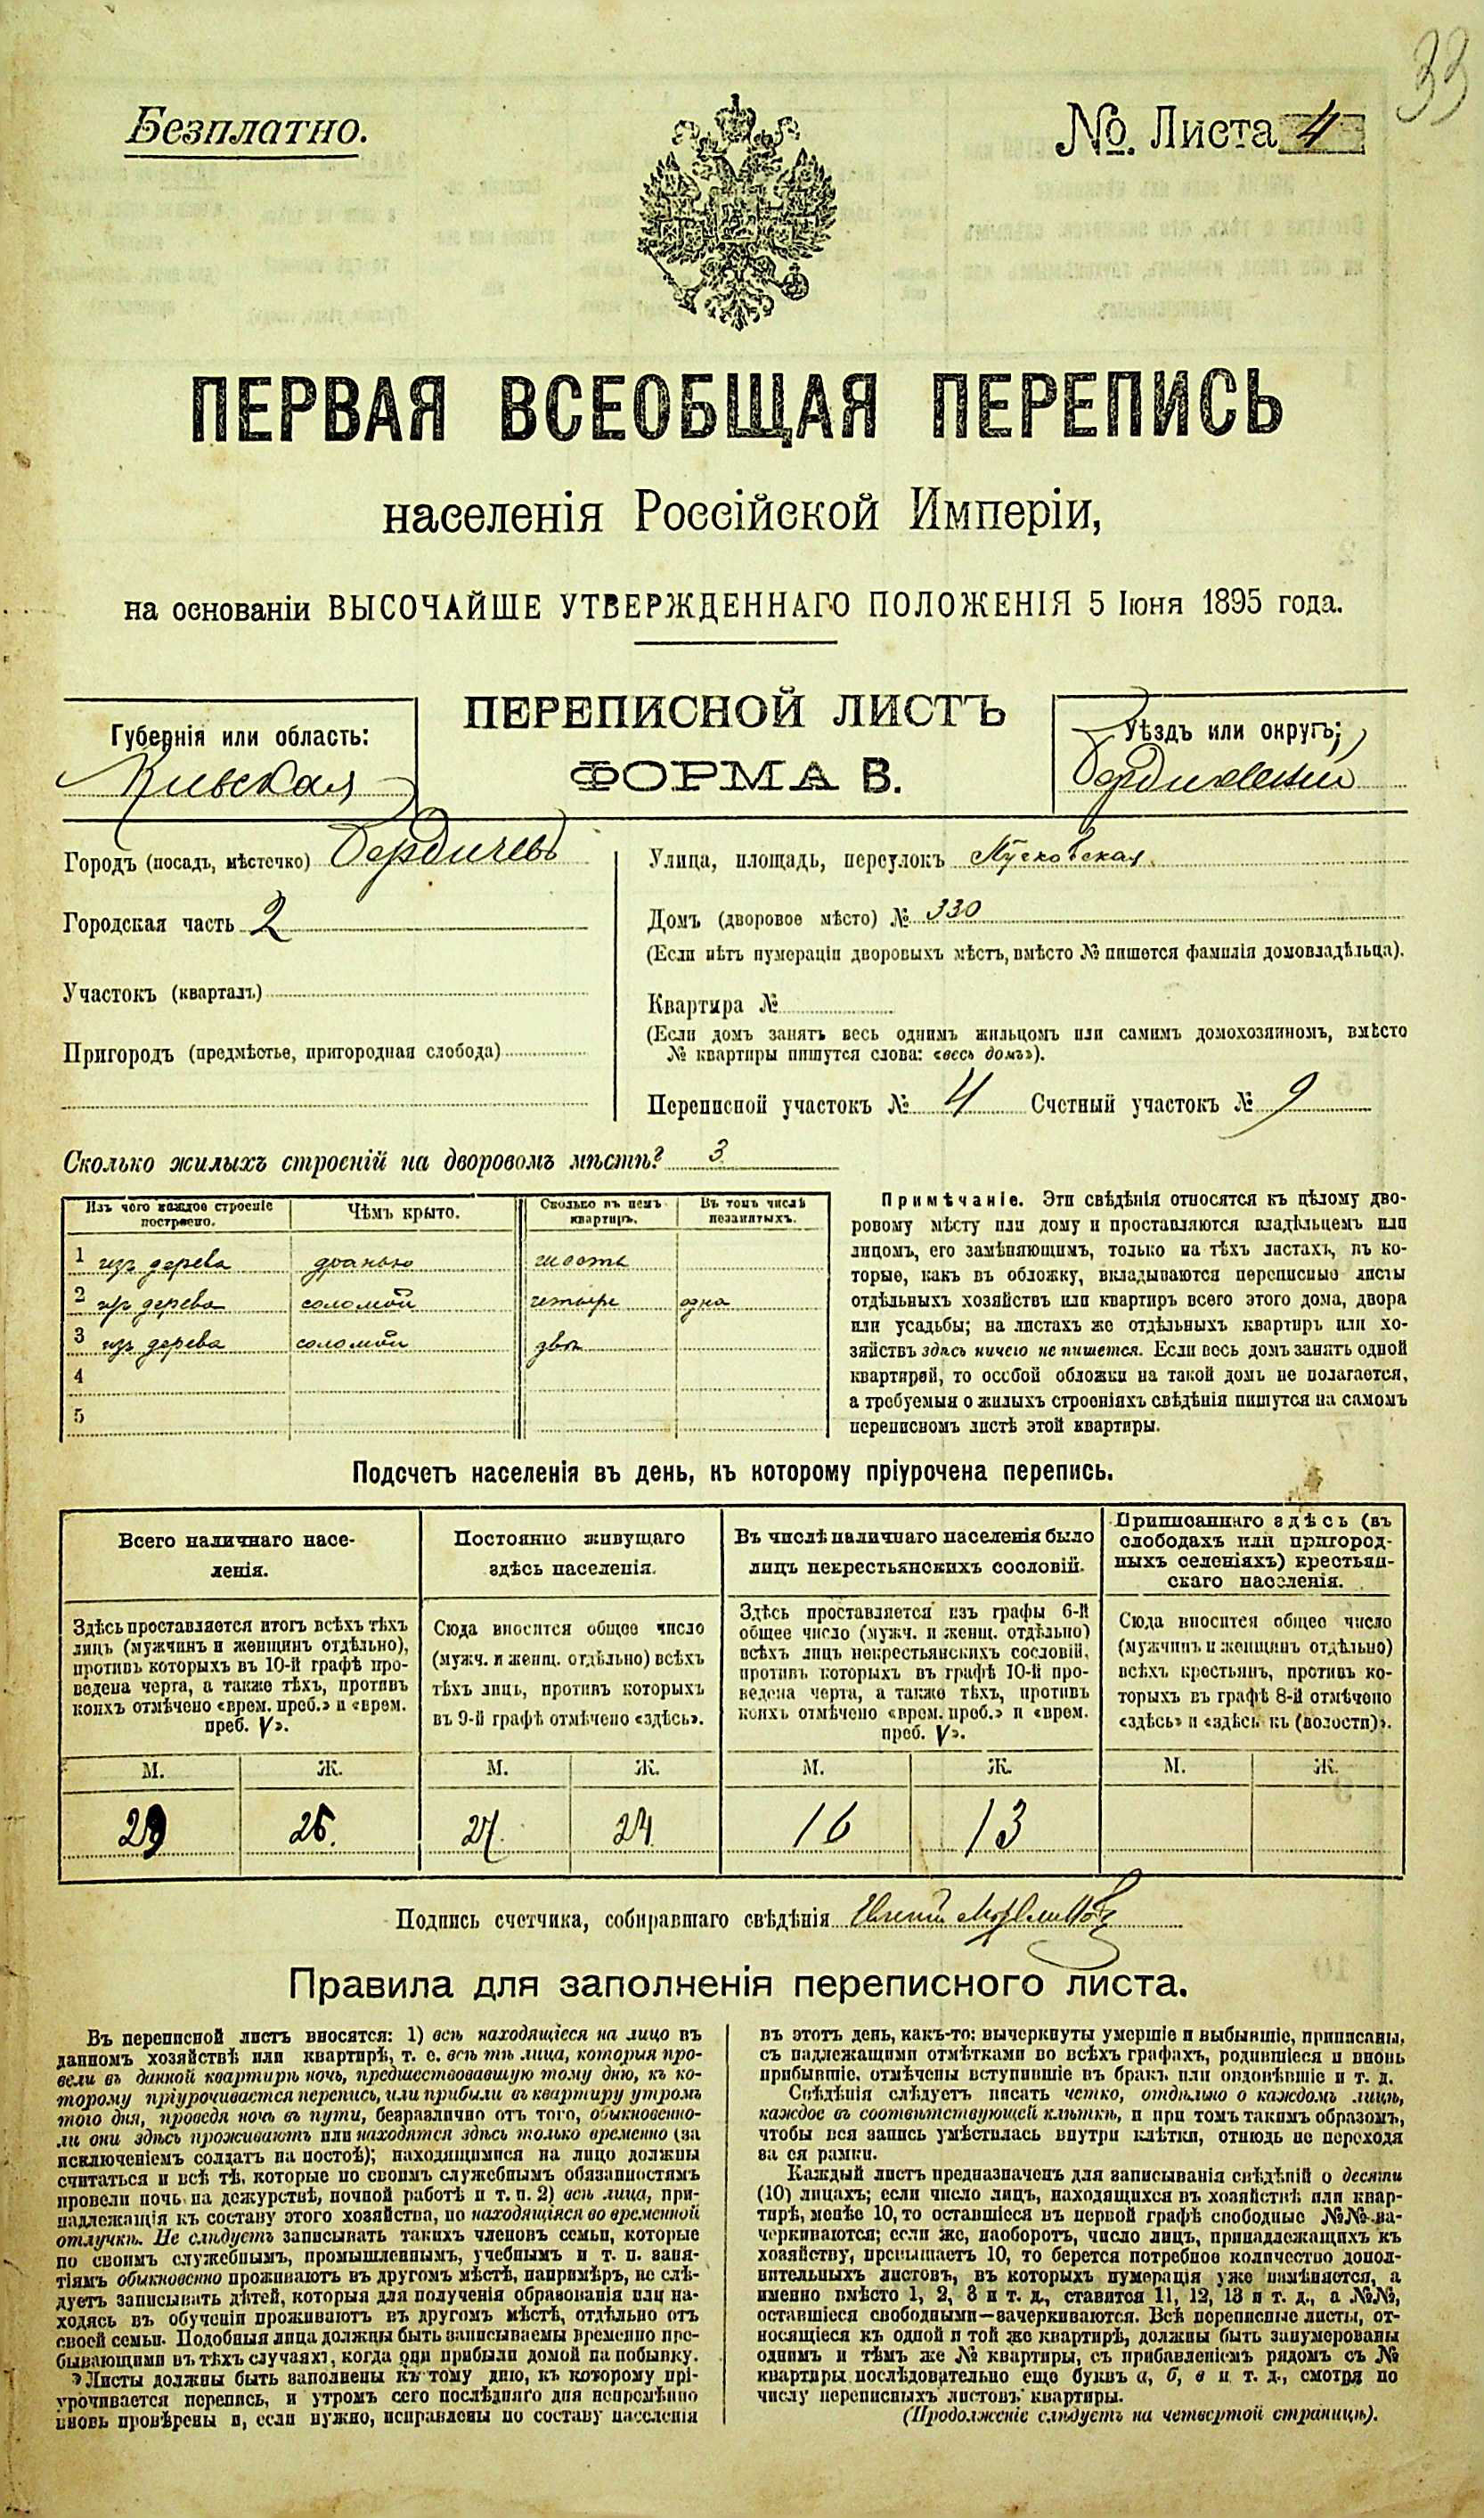 33
Безплатно.
№. Листа 4
ПЕРВАЯ ВСЕОБЩАЯ ПЕРЕПИСЬ
населенія Россійской Имперіи,
на основаніи ВЫСОЧАЙШЕ УТВЕРЖДЕННАГО ПОЛОЖЕНІЯ 5 Іюня 1895 года.
ПЕРЕПИСНОЙ ЛИСТЪ
ФОРМА В.
Губернія или область:
Киевская
Уѣздъ или округъ:
Бердичевский
Городъ (посадъ, мѣстечко) Бердичевъ
Городская часть 2
Участокъ (кварталъ)
Пригородъ (предмѣстье, пригородная слобода)
Улица, площадь, переулокъ
Домъ (дворовое мѣсто) № 330
(Если нѣтъ нумераціи дворовыхъ мѣстъ, вмѣсто № пишется фамилія домовладѣльца).
Квартира №
(Если домъ занятъ весь однимъ жильцомъ или самимъ домохозяиномъ, вмѣсто
№ квартиры пишутся слова: «весь домъ»).
Переписной участокъ № 4 Счетный участокъ № 9
Сколько жилыхъ строеній на дворовомъ мѣстѣ? 3
Изъ чего каждое строеніе построено.
Чѣмъ крыто.
Сколько въ немъ квартиръ.
Въ томъ числѣ незанятыхъ.
1 изъ дерева дранью шесть
2 изъ дерева соломой четыре одна
3 изъ дерева соломой двѣ
4
5
Примѣчаніе. Эти свѣдѣнія относятся къ цѣлому дво-
ровому мѣсту или дому и проставляются владѣльцемъ или
лицомъ, его замѣняющимъ, только на тѣхъ листахъ, въ ко-
торые, какъ въ обложку, вкладываются переписные листы
отдѣльныхъ хозяйствъ или квартиръ всего этого дома, двора
или усадьбы; на листахъ же отдѣльныхъ квартиръ или хо-
зяйствъ здѣсь ничего не пишется. Если весь домъ занятъ одной
квартирой, то особой обложки на такой домъ не полагается,
а требуемыя о жилыхъ строеніяхъ свѣдѣнія пишутся на самомъ
переписномъ листѣ этой квартиры.
Подсчетъ населенія въ день, къ которому пріурочена перепись.
Всего наличнаго насе-
ленія.
Здѣсь проставляется итогъ всѣхъ тѣхъ
лицъ (мужчинъ и женщинъ отдѣльно),
противъ которыхъ въ 10-й графѣ про-
ведена черта, а также тѣхъ, противъ
коихъ отмѣчено «врем. преб.» и «врем.
преб. V».
Постоянно живущаго
здѣсь населенія.
Сюда вносится общее число
(мужч. и женщ. отдѣльно) всѣхъ
тѣхъ лицъ, противъ которыхъ
въ 9-й графѣ отмѣчено «здѣсь».
Въ числѣ наличнаго населенія было
лицъ некрестьянскихъ сословій.
Здѣсь проставляется изъ графы 6-й
общее число (мужч. и женщ. отдѣльно)
всѣхъ лицъ некрестьянскихъ сословій,
противъ которыхъ въ графѣ 10-й про-
ведена черта, а также тѣхъ, противъ
коихъ отмѣчено «врем. преб.» и «врем.
преб. V».
Приписаннаго здѣсь (въ
слободахъ или пригород-
ныхъ селеніяхъ) крестьян-
скаго населенія.
Сюда вносится общее число
(мужчинъ и женщинъ отдѣльно)
всѣхъ крестьянъ, противъ ко-
торыхъ въ графѣ 8-й отмѣчено
«здѣсь» и «здѣсь къ (волости)».
М. Ж. М. Ж. М. Ж. М. Ж.
29 25. 24 16 13
Подпись счетчика, собиравшаго свѣдѣнія
Правила для заполненія переписного листа.
Въ переписной листъ вносятся: 1) всѣ находящіеся на лицо въ
данномъ хозяйствѣ или квартирѣ, т. е. всѣ тѣ лица, которыя про-
вели въ данной квартирѣ ночь, предшествовавшую тому дню, къ ко-
торому пріурочивается перепись, или прибыли въ квартиру утромъ
того дня, проведя ночь въ пути, безразлично отъ того, обыкновенно-
ли они здѣсь проживаютъ или находятся здѣсь только временно (за
исключеніемъ солдатъ на постоѣ); находящимися на лицо должны
считаться и всѣ тѣ, которые по своимъ служебнымъ обязанностямъ
провели ночь на дежурствѣ, ночной работѣ и т. п. 2) всѣ лица, при-
надлежащія къ составу этого хозяйства, но находящіяся во временной
отлучкѣ. Не слѣдуетъ записывать такихъ членовъ семьи, которые
по своимъ служебнымъ, промышленнымъ, учебнымъ и т. п. заня-
тіямъ обыкновенно проживаютъ въ другомъ мѣстѣ, напримѣръ, не слѣ-
дуетъ записывать дѣтей, которыя для полученія образованія или на-
ходясь въ обученіи проживаютъ въ другомъ мѣстѣ, отдѣльно отъ
своей семьи. Подобныя лица должны быть записываемы временно пре-
бывающими въ тѣхъ случаяхъ, когда они прибыли домой на побывку.
Листы должны быть заполнены къ тому дню, къ которому прі-
урочивается перепись, и утромъ сего послѣдняго дня непремѣнно
вновь провѣрены и, если нужно, исправлены по составу населенія
въ этотъ день, какъ-то: вычеркнуты умершіе и выбывшіе, приписаны,
съ надлежащими отмѣтками во всѣхъ графахъ, родившіеся и вновь
прибывшіе, отмѣчены вступившіе въ бракъ или овдовѣвшіе и т. д.
Свѣдѣнія слѣдуетъ писать четко, отдѣльно о каждомъ лицѣ,
каждое въ соотвѣтствующей клѣткѣ, и при томъ такимъ образомъ,
чтобы вся запись умѣстилась внутри клѣтки, отнюдь не переходя
за ея рамки.
Каждый листъ предназначенъ для записыванія свѣдѣній о десяти
(10) лицахъ; если число лицъ, находящихся въ хозяйствѣ или квар-
тирѣ, менѣе 10, то оставшіеся въ первой графѣ свободные №№ за-
черкиваются; если же, наоборотъ, число лицъ, принадлежащихъ къ
хозяйству, превышаетъ 10, то берется потребное количество допол-
нительныхъ листовъ, въ которыхъ нумерація уже измѣняется, а
именно вмѣсто 1, 2, 3 и т. д., ставится 11, 12, 13 и т. д., а №№,
оставшіеся свободными—зачеркиваются. Всѣ переписные листы, от-
носящіеся къ одной и той же квартирѣ, должны быть занумерованы
однимъ и тѣмъ же № квартиры, съ прибавленіемъ рядомъ съ №
квартиры послѣдовательно еще буквъ а, б, в и т. д., смотря по
числу переписныхъ листовъ квартиры.
(Продолженіе слѣдуетъ на четвертой страницѣ).